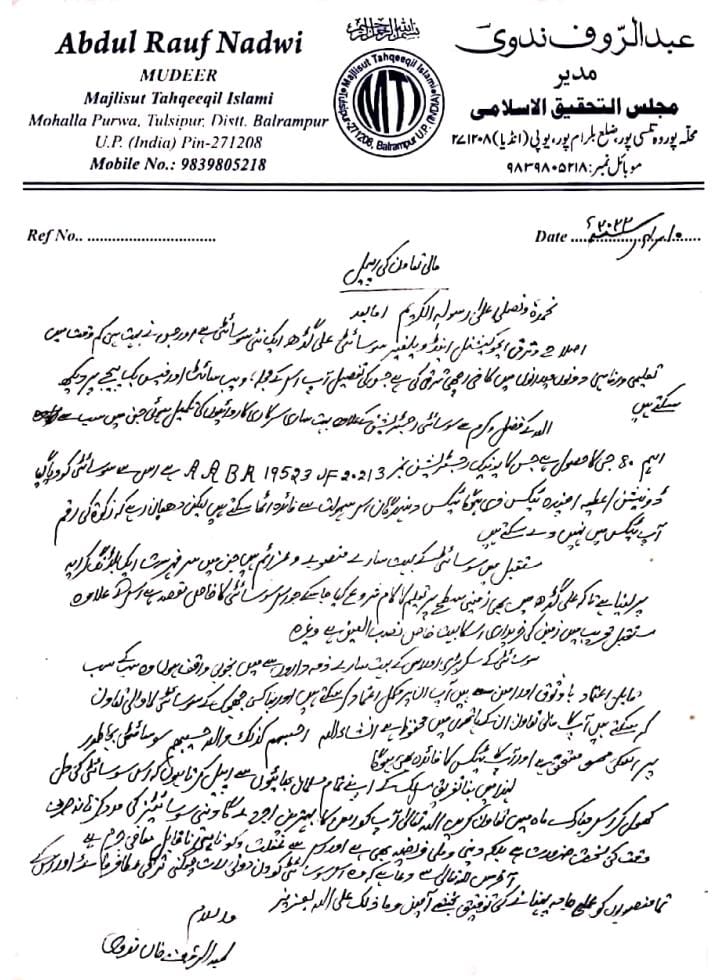 Abdul Rauf Nadwi
MUDEER
Majlisut Tahqeeqil Islami
Mohalla Purwa, Tulsipur, Distt. Balrampur
U.P. (India) Pin-271208
Mobile No.: 9839805218
بسم الله الرحمن الرحيم
Majlisut Tahqeeqil Islami
MTI
Tulsipur-271208, Balrampur U.P. (INDIA)
عبدالرّوف ندوی
مدیر
مجلس التحقیق الاسلامی
محلہ پوروہ تلسی پور، ضلع بلرام پور، یوپی (انڈیا) ۲۷۱۲۰۸
موبائل نمبر: ۹۸۳۹۸۰۵۲۱۸
Ref No.. ................................
Date ....۱۰ ۲۰۲۲ء
مالی تعاون کی اپیل
نحمدہ ونصلی علی رسولہ الکریم امابعد
اصلاح و ترقی ایجوکیشنل اینڈ ویلفیر سوسائٹی علی گڈھ ایک نئی سوسائٹی ہے اور جس نے بہت ہی کم وقت میں
تعلیمی ورفاہی دونوں میدانوں میں کافی اچھی ترقی کی ہے جس کی تفصیل آپ اس کے ویب سائٹ اور فیس بک پیج پر دیکھ
سکتے ہیں
اللہ کے فضل وکرم سے سوسائٹی رجسٹریشن کے علاوہ بہت ساری سرکاری کارروائیوں کی تکمیل ہوئی جن میں سب سے
اہم ۸۰ جی کا حصول ہے جس کا یونیک رجسٹریشن نمبر AABA 19523 JF 20213 ہے اس سے سوسائٹی کو دیا گیا
ڈونیشن / عطیہ چندہ ٹیکس فری ہوگا ٹیکس دہندگان اس سہولت سے فائدہ اٹھا سکتے ہیں لیکن دھیان رہے کہ زکوة کی رقم
آپ ٹیکس میں نہیں دے سکتے ہیں
مستقبل میں سوسائٹی کے بہت سارے منصوبے وعزائم ہیں جن میں سر فہرست ایک بلڈنگ کرایہ
پر لینا ہے تاکہ علی گڈھ میں بھی زمینی سطح پر تعلیم کا کام شروع کیا جاسکے جو اس سوسائٹی کا خاص مقصد ہے اس کے علاوہ
مستقبل قریب میں زمین کی خریداری اس کا بہت خاص نصب العین ہے وغیرہ
سوسائٹی کے سکریٹری اور اس کے بہت سارے ذمہ داروں سے میں بخوبی واقف ہوں وہ سب کے سب
قابل اعتماد باوثوق اور امین ہیں آپ ان پر مکمل اعتماد کرسکتے ہیں اور بنا کسی جھجک کے سوسائٹی کا مالی تعاون
کرسکتے ہیں آپ کا مالی تعاون ان کے ہاتھوں میں محفوظ ہے انشاء اللہ احسبهم كذلك والله حسيبهم سوسائٹی بجا طور
پر اسکی مستحق ہے اور آپ کو ٹیکس کا فائدہ بھی ہوگا
لہذا میں بنا تفریق مسلک کے اپنے تمام مسلمان بھائیوں سے اپیل کرتا ہوں کہ اس سوسائٹی کی دل
کھول کر اس مبارک ماہ میں تعاون کریں اللہ تعالی آپ کو اس کا بہترین اجر دے گا دینی سوسائٹیز کی مدد کرنا نہ صرف
وقت کی سخت ضرورت ہے بلکہ دینی وملی فریضہ بھی ہے اور اس سے غفلت وکوتاہی ناقابل معافی جرم ہے
آخر میں اللہ تعالی سے دعا ہے کہ وہ اس سوسائٹی کو دن دونی رات چوگنی ترقی عطا فرمائے اور اس کے
تمام منصوبوں کو عملی جامہ پہنانے کی توفیق بخشے آمین وما ذلك على الله بعزيز
والسلام
عبدالرؤف خاں ندوی